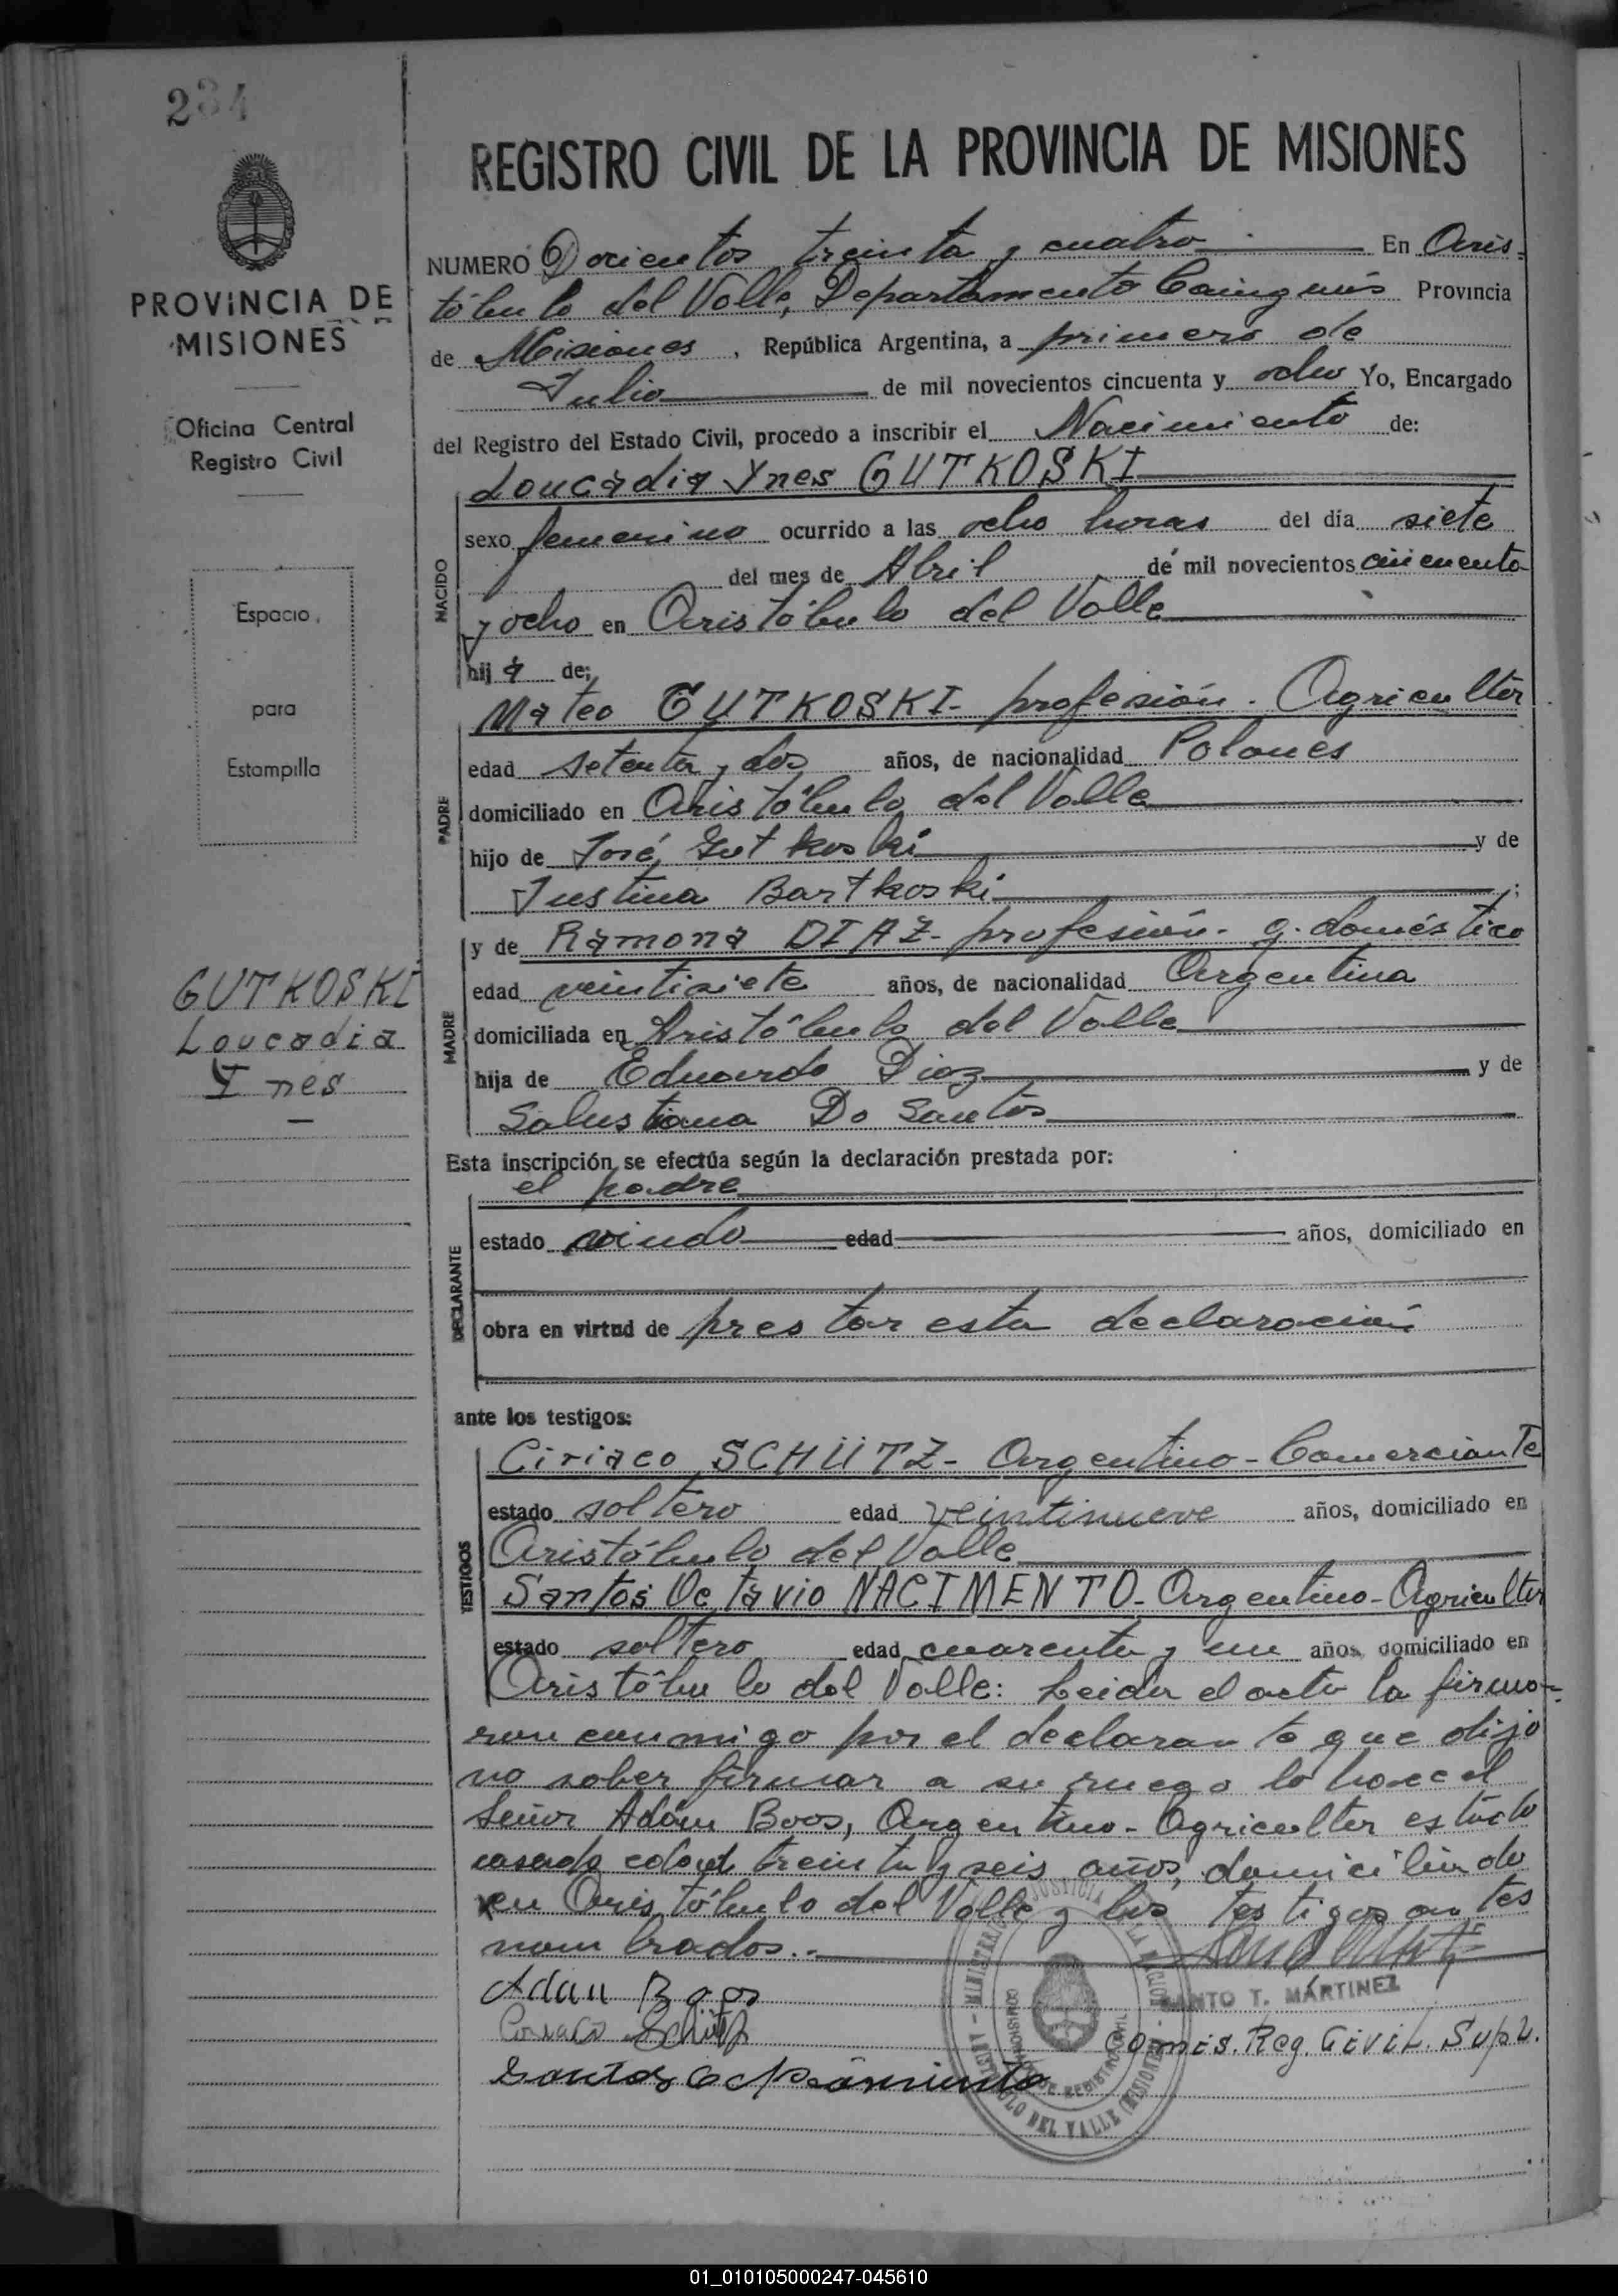 234
REGISTRO CIVIL DE LA PROVINCIA DE MISIONES
PROVINCIA DE
MISIONES
Oficina Central
Registro Civil
Espacio
para
Estampilla
GUTKOSKI
Loucadia
Ines
NUMERO Docientos treinta y cuatro En Aris-
tóbulo del Valle, Departamento Cainguás Provincia
de Misiones, República Argentina, a primero de
Julio de mil novecientos cincuenta y ocho Yo, Encargado
del Registro del Estado Civil, procedo a inscribir el Nacimiento de:
NACIDO
Loucadia Ynes GUTKOSKI
sexo femenino ocurrido a las ocho horas del día siete
del mes de Abril de mil novecientos cincuenta
y ocho en Aristóbulo del Valle
hija de;
PADRE
Mateo GUTKOSKI- profesión. Agricultor
edad setenta y dos años, de nacionalidad Polones
domiciliado en Aristóbulo del Valle
hijo de José Gutkoski y de
Justina Bartkoski;
MADRE
y de Ramona DIAZ- profesión- q. doméstico
edad veintisiete años, de nacionalidad Argentina
domiciliada en Aristóbulo del Valle
hija de Eduardo Diaz y de
Salustiana Do Santos
Esta inscripción se efectúa según la declaración prestada por:
DECLARANTE
el padre
estado viudo edad años, domiciliado en
obra en virtud de prestar esta declaración
ante los testigos:
TESTIGOS
Ciriaco SCHÜTZ- Argentino- Comerciante
estado soltero edad veintinueve años, domiciliado en
Aristóbulo del Valle
Santos Octavio NACIMENTO- Argentino- Agricultor
estado soltero edad cuarenta y un años, domiciliado en
Aristóbulo del Valle: Leida el acta la firma-
ron conmigo por el declarante que dijo
no saber firmar a su ruego lo hace el
Señor Adám Boos, Argentino- Agricultor estado
casado edad treinta y seis años, domiciliado
en Aristóbulo del Valle y los testigos antes
nombrados.-
Adan Boos
Schütz
SANTO T. MARTINEZ
Comis. Reg. Civil. Supl.
01_010105000247-045610